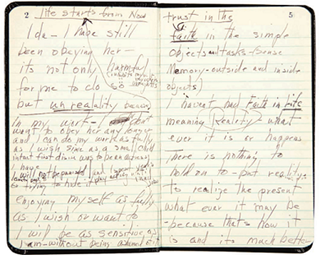 2 life starts from Now
Ida - I have still
been obeying her -
it's not only (harmful
for me to do so
but unreality because
in my work - 
want to obey her any longer
and I can do my work as fully
as I wish since as a small child
intact first desire was to be an actress
I have
I will not be punished
or trying to hide it
enjoying myself as fully
as I wish or want to
I will be as sensitive as
I am - without being ashamed of it
5
trust in the
faith in the simple
objects + tasks - sense
memory - outside and inside
objects)
I haven't had Faith in Life
meaning Reality - what
ever it is or happens
there is nothing to
hold on to - but reality
to realize the present
what ever it may be
- because that's how it
is and it's much better